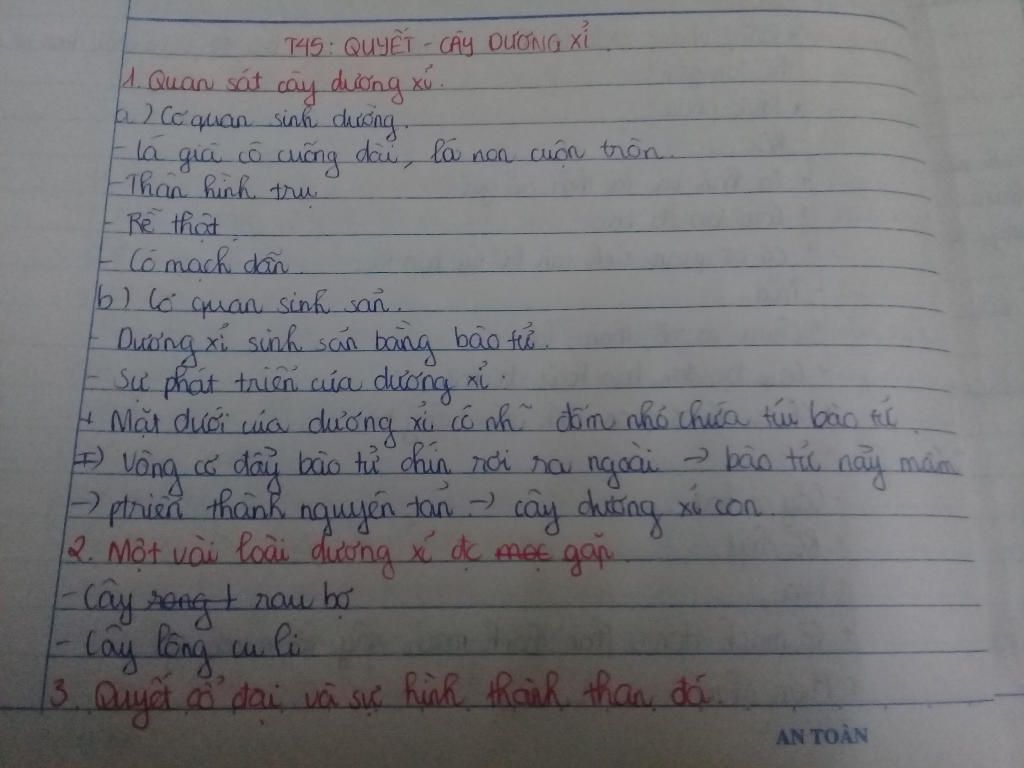 T45: QUYẾT - CÂY DƯƠNG XỈ.
1. Quan sát cây dương xỉ.
a.) Cơ quan sinh dưỡng.
- Lá già có cuống dài, lá non cuộn tròn.
- Thân hình trụ
- Rễ thật.
- Có mạch dẫn.
b) Cơ quan sinh sản.
- Dương xỉ sinh sản bằng bào tử.
- Sự phát triển của dương xỉ.
+ Mặt dưới của dương xỉ có nh~ đốm nhỏ chứa túi bào tử.
+) Vòng cơ đẩy bào tử chín rơi ra ngoài → bào tử nảy mầm
→ ptriển thành nguyên tản → cây dương xỉ con.
2. Một vài loài dương xỉ đc gặp
- Cây rau bợ
- Cây lông cu li
3. Quyết cổ đại và sự hình thành than đá.
AN TOÀN